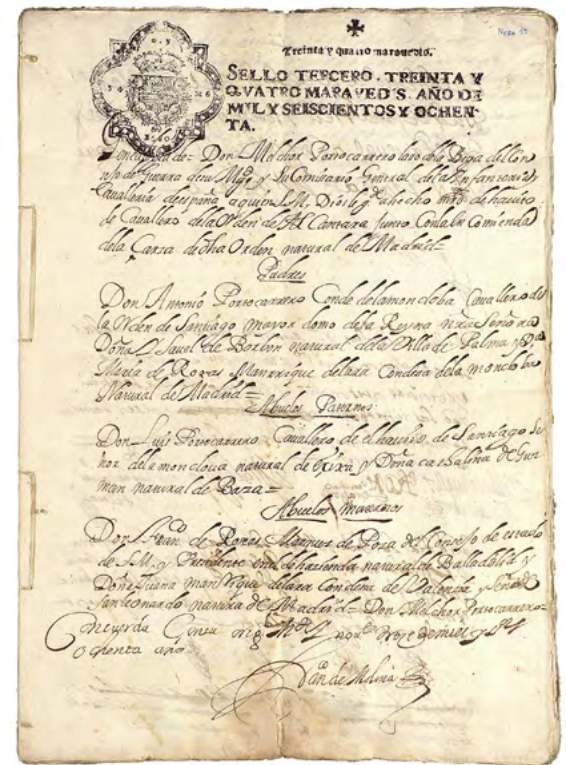 Treinta y quatro marauedis.
SELLO TERCERO, TREINTA Y
QVATRO MARAVEDIS, AÑO DE
MIL Y SEISCIENTOS Y OCHEN-
TA.
de Don Melchor Portocarrero laso de la Bega del Con
sejo de Guerra de su Mgd y su Comisario General de la Infanteria y
Cavalleria de españa a quien S.M. Dios le ge a hecho mrd de hauito
de Cauallero de la Orden de Alcantara junto Con la Encomienda
de la Carsa de dha Orden natural de Madrid=
Padres
Don Antonio Portocarrero Conde de la moncloba Cauallero de
la Orden de Santiago mayor domo de la Reyna nra Señora
Doña Ysauel de Borbon natural de la Villa de Palma y Da
Maria de Roxas Manrrique de lara Condesa de la moncloba
Natural de Madrid=
Abuelos Paternos
Don Luis Portocarrero Cauallero de el hauito de Santiago Se
ñor de la moncloua natural de y Doña Cathalina de Guz
man natural de Baza=
Abuelos maternos
Don de Roxas Marques de Poza del Consejo de estado
de S.M. y Presidente en el de hazienda natural de Balladolid y
Doña Juana manrrique de lara Condesa de Valencia y Señora de
San leonardo natural de Madrid= Don Melchor Portocarrero=
Concuerda Con su
ochenta años
de Molina